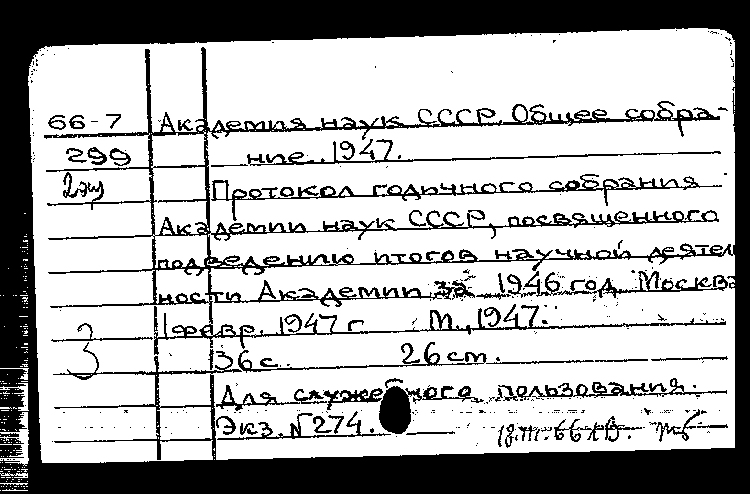 66-7 Академия наук СССР. Общее собра-
299 ние. 1947.
2 экз Протокол годичного собрания
Академии наук СССР, посвященного
подведению итогов научной деятель
ности Академии за 1946 год. Москва
1 февр. 1947 г. М., 1947.
3 36 с. 26 см.
Для служебного пользования.
Экз. № 274.